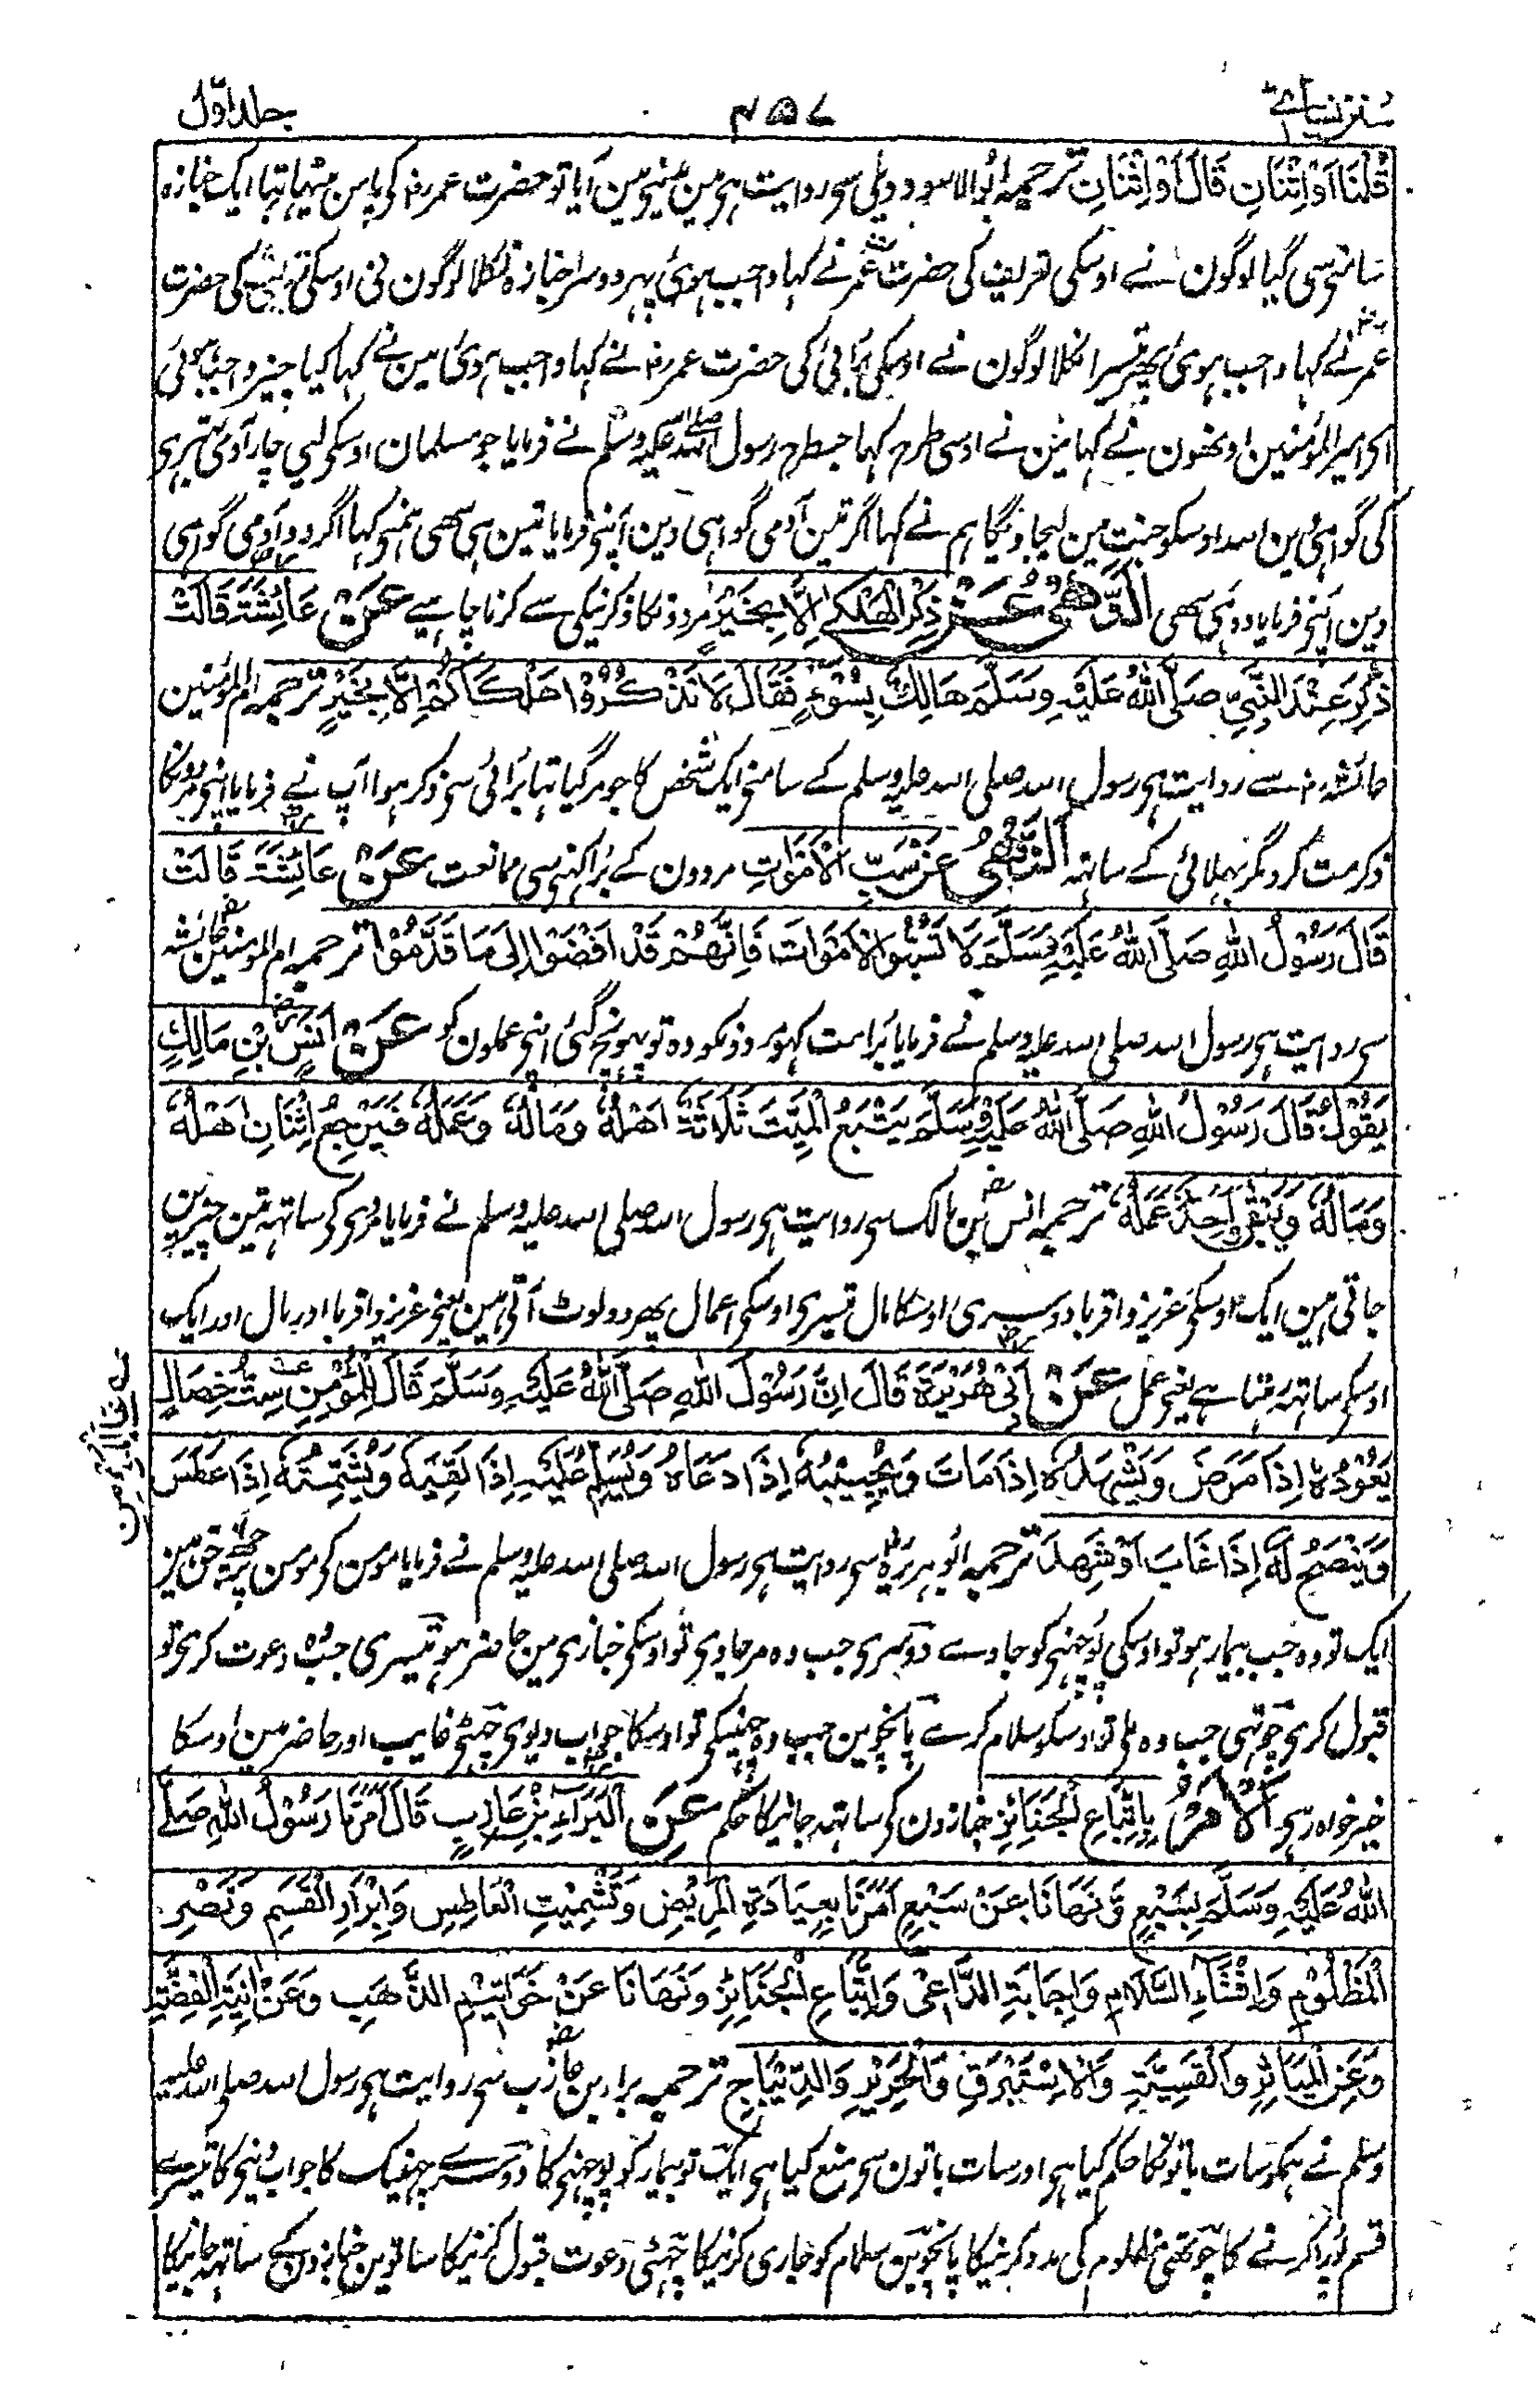 سنن نسائی ۴۵۷ جلد اوّل
قُلْنَا اَوْ اِثْنَانِ قَالَ اَوْ اِثْنَانِ ترجمہ ابوالاسود دیلی سے روایت ہی مین مدینے مین آیا تو حضرت عمررضہ کی پاس بیٹھا تھا ایک جنازہ
سامنی سی گیا لوگون نے اوسکی تعریف کی حضرت عمر نے کہا واجب ہوئی پہر دوسرا جنازہ نکلا لوگون نی اوسکی تعریف کی حضرت
عمر نے کہا واجب ہوئی پھر تیسرا نکلا لوگون نے اوسکی برائی کی حضرت عمررضہ نے کہا واجب ہوئی مین نے کہا کیا چیز واجب ہوئی
ای امیرالمؤمنین اونھون نے کہا مین نے اوسی طرح کہا جسطرح رسول اللہ صلی اللہ علیہ وسلم نے فرمایا جو مسلمان اوسکی لیی چار آدمی بہتری
کی گواہی دین اللہ اوسکو جنت مین لیجاویگا ہم نے کہا اگر تین آدمی گواہی دین آپنی فرمایا تین ہی سھی ہمنی کہا اگر دو آدمی گواہی
دین آپنی فرمایا دو ہی سھی اَلنَّهْیُ عَنْ ذِکْرِ الْهَلْکٰی اِلَّا بِخَیْرٍ مردونکا ذکر نیکی سے کرنا چاہیے عَنْ عَائِشَةَ قَالَتْ
ذُکِرَ عِنْدَ النَّبِیِّ صَلَّی اللّٰهُ عَلَیْهِ وَسَلَّمَ هَالِكٌ بِسُوْءٍ فَقَالَ لَا تَذْکُرُوْا هَلْکَاکُمْ اِلَّا بِخَیْرٍ ترجمہ ام المؤمنین
عائشہ رضہ سے روایت ہی رسول اللہ صلی اللہ علیہ وسلم کے سامنی ایک شخص کا جو مرگیا تہا برائی سی ذکر ہوا آپ نے فرمایا اپنی مردونکا
ذکر مت کرو مگر بہلائی کے ساتہہ اَلنَّهْیُ عَنْ سَبِّ الْاَمْوَاتِ مردون کے برا کہنی سی ممانعت عَنْ عَائِشَةَ قَالَتْ
قَالَ رَسُوْلُ اللّٰهِ صَلَّی اللّٰهُ عَلَیْهِ وَسَلَّمَ لَا تَسُبُّوا الْاَمْوَاتَ فَاِنَّهُمْ قَدْ اَفْضَوْا اِلٰی مَا قَدَّمُوْا ترجمہ ام المومنین عائشہ
سی روایت ہی رسول اللہ صلی اللہ علیہ وسلم نے فرمایا برا مت کہو مردونکو وہ تو پہونچ گئی اپنی عملون کو عَنْ اَنَسِ بْنِ مَالِكٍ
یَقُوْلُ قَالَ رَسُوْلُ اللّٰهِ صَلَّی اللّٰهُ عَلَیْهِ وَسَلَّمَ یَتْبَعُ الْمَیِّتَ ثَلَاثَةٌ اَهْلُهٗ وَمَالُهٗ وَعَمَلُهٗ فَیَرْجِعُ اِثْنَانِ اَهْلُهٗ
وَمَالُهٗ وَیَبْقٰی وَاحِدٌ عَمَلُهٗ ترجمہ انس بن مالک سی روایت ہی رسول اللہ صلی اللہ علیہ وسلم نے فرمایا مردی کی ساتہہ تین چیزین
جاتی ہین ایک اوسکی عزیز و اقربا دوسری اوسکا مال تیسری اوسکی اعمال پھر دو لوٹ آتی ہین یعنی عزیز و اقربا اور مال اور ایک
اوسکی ساتہہ رہتا ہے یعنی عمل عَنْ اَبِیْ هُرَیْرَةَ قَالَ اِنَّ رَسُوْلَ اللّٰهِ صَلَّی اللّٰهُ عَلَیْهِ وَسَلَّمَ قَالَ لِلْمُؤْمِنِ سِتُّ خِصَالٍ
یَعُوْدُهٗ اِذَا مَرِضَ وَیَشْهَدُهٗ اِذَا مَاتَ وَیُجِیْبُهٗ اِذَا دَعَاهُ وَیُسَلِّمُ عَلَیْهِ اِذَا لَقِیَهٗ وَیُشَمِّتُهٗ اِذَا عَطَسَ
وَیَنْصَحُ لَهٗ اِذَا غَابَ اَوْ شَهِدَ ترجمہ ابوہریرہ سی روایت ہی رسول اللہ صلی اللہ علیہ وسلم نے فرمایا مومن کی مومن پر چھہ حق ہین
ایک تو وہ جب بیمار ہو تو اوسکی پوچہنی کو جاوے دوسری جب وہ مرجاوی تو اوسکی جنازی مین حاضر ہو تیسری جب وہ دعوت کری تو
قبول کری چوتہی جب وہ ملی تو اوسکو سلام کرے پانچوین جب وہ چھینکی تو اوسکا جواب دیوی چھٹی غایب اور حاضر مین اوسکا
خیرخواہ رہی اَلْاَمْرُ بِاِتِّبَاعِ الْجَنَائِزِ جنازون کی ساتہہ جانیکا حکم عَنِ الْبَرَاءِ بْنِ عَازِبٍ قَالَ اَمَرَنَا رَسُوْلُ اللّٰهِ صَلَّی
اللّٰهُ عَلَیْهِ وَسَلَّمَ بِسَبْعٍ وَّنَهَانَا عَنْ سَبْعٍ اَمَرَنَا بِعِیَادَةِ الْمَرِیْضِ وَتَشْمِیْتِ الْعَاطِسِ وَاِبْرَارِ الْقَسَمِ وَنَصْرِ
الْمَظْلُوْمِ وَاِفْشَاءِ السَّلَامِ وَاِجَابَةِ الدَّاعِیْ وَاِتِّبَاعِ الْجَنَائِزِ وَنَهَانَا عَنْ خَوَاتِیْمِ الذَّهَبِ وَعَنْ اٰنِیَةِ الْفِضَّةِ
وَعَنِ الْمَیَاثِرِ وَالْقَسِّیَّةِ وَالْاِسْتَبْرَقِ وَالْحَرِیْرِ وَالدِّیْبَاجِ ترجمہ براء بن عازب سی روایت ہی رسول اللہ صلی اللہ علیہ
وسلم نے ہمکو سات باتونکا حکم کیا ہی اور سات باتون سی منع کیا ہی ایک تو بیمار کو پوچہنی کا دوسرے چھینک کا جواب دینی کا تیسرے
قسم پورا کرنے کا چوتھی مظلوم کی مدد کرنیکا پانچوین سلام کو جاری کرنیکا چھٹی دعوت قبول کرنیکا ساتوین جنازون کے ساتہہ جانیکا